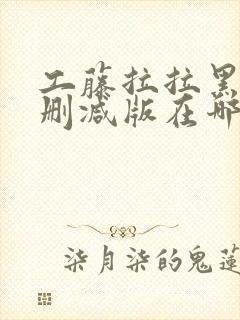 工藤拉拉黑
删减版在哪
柒月柒的鬼莲